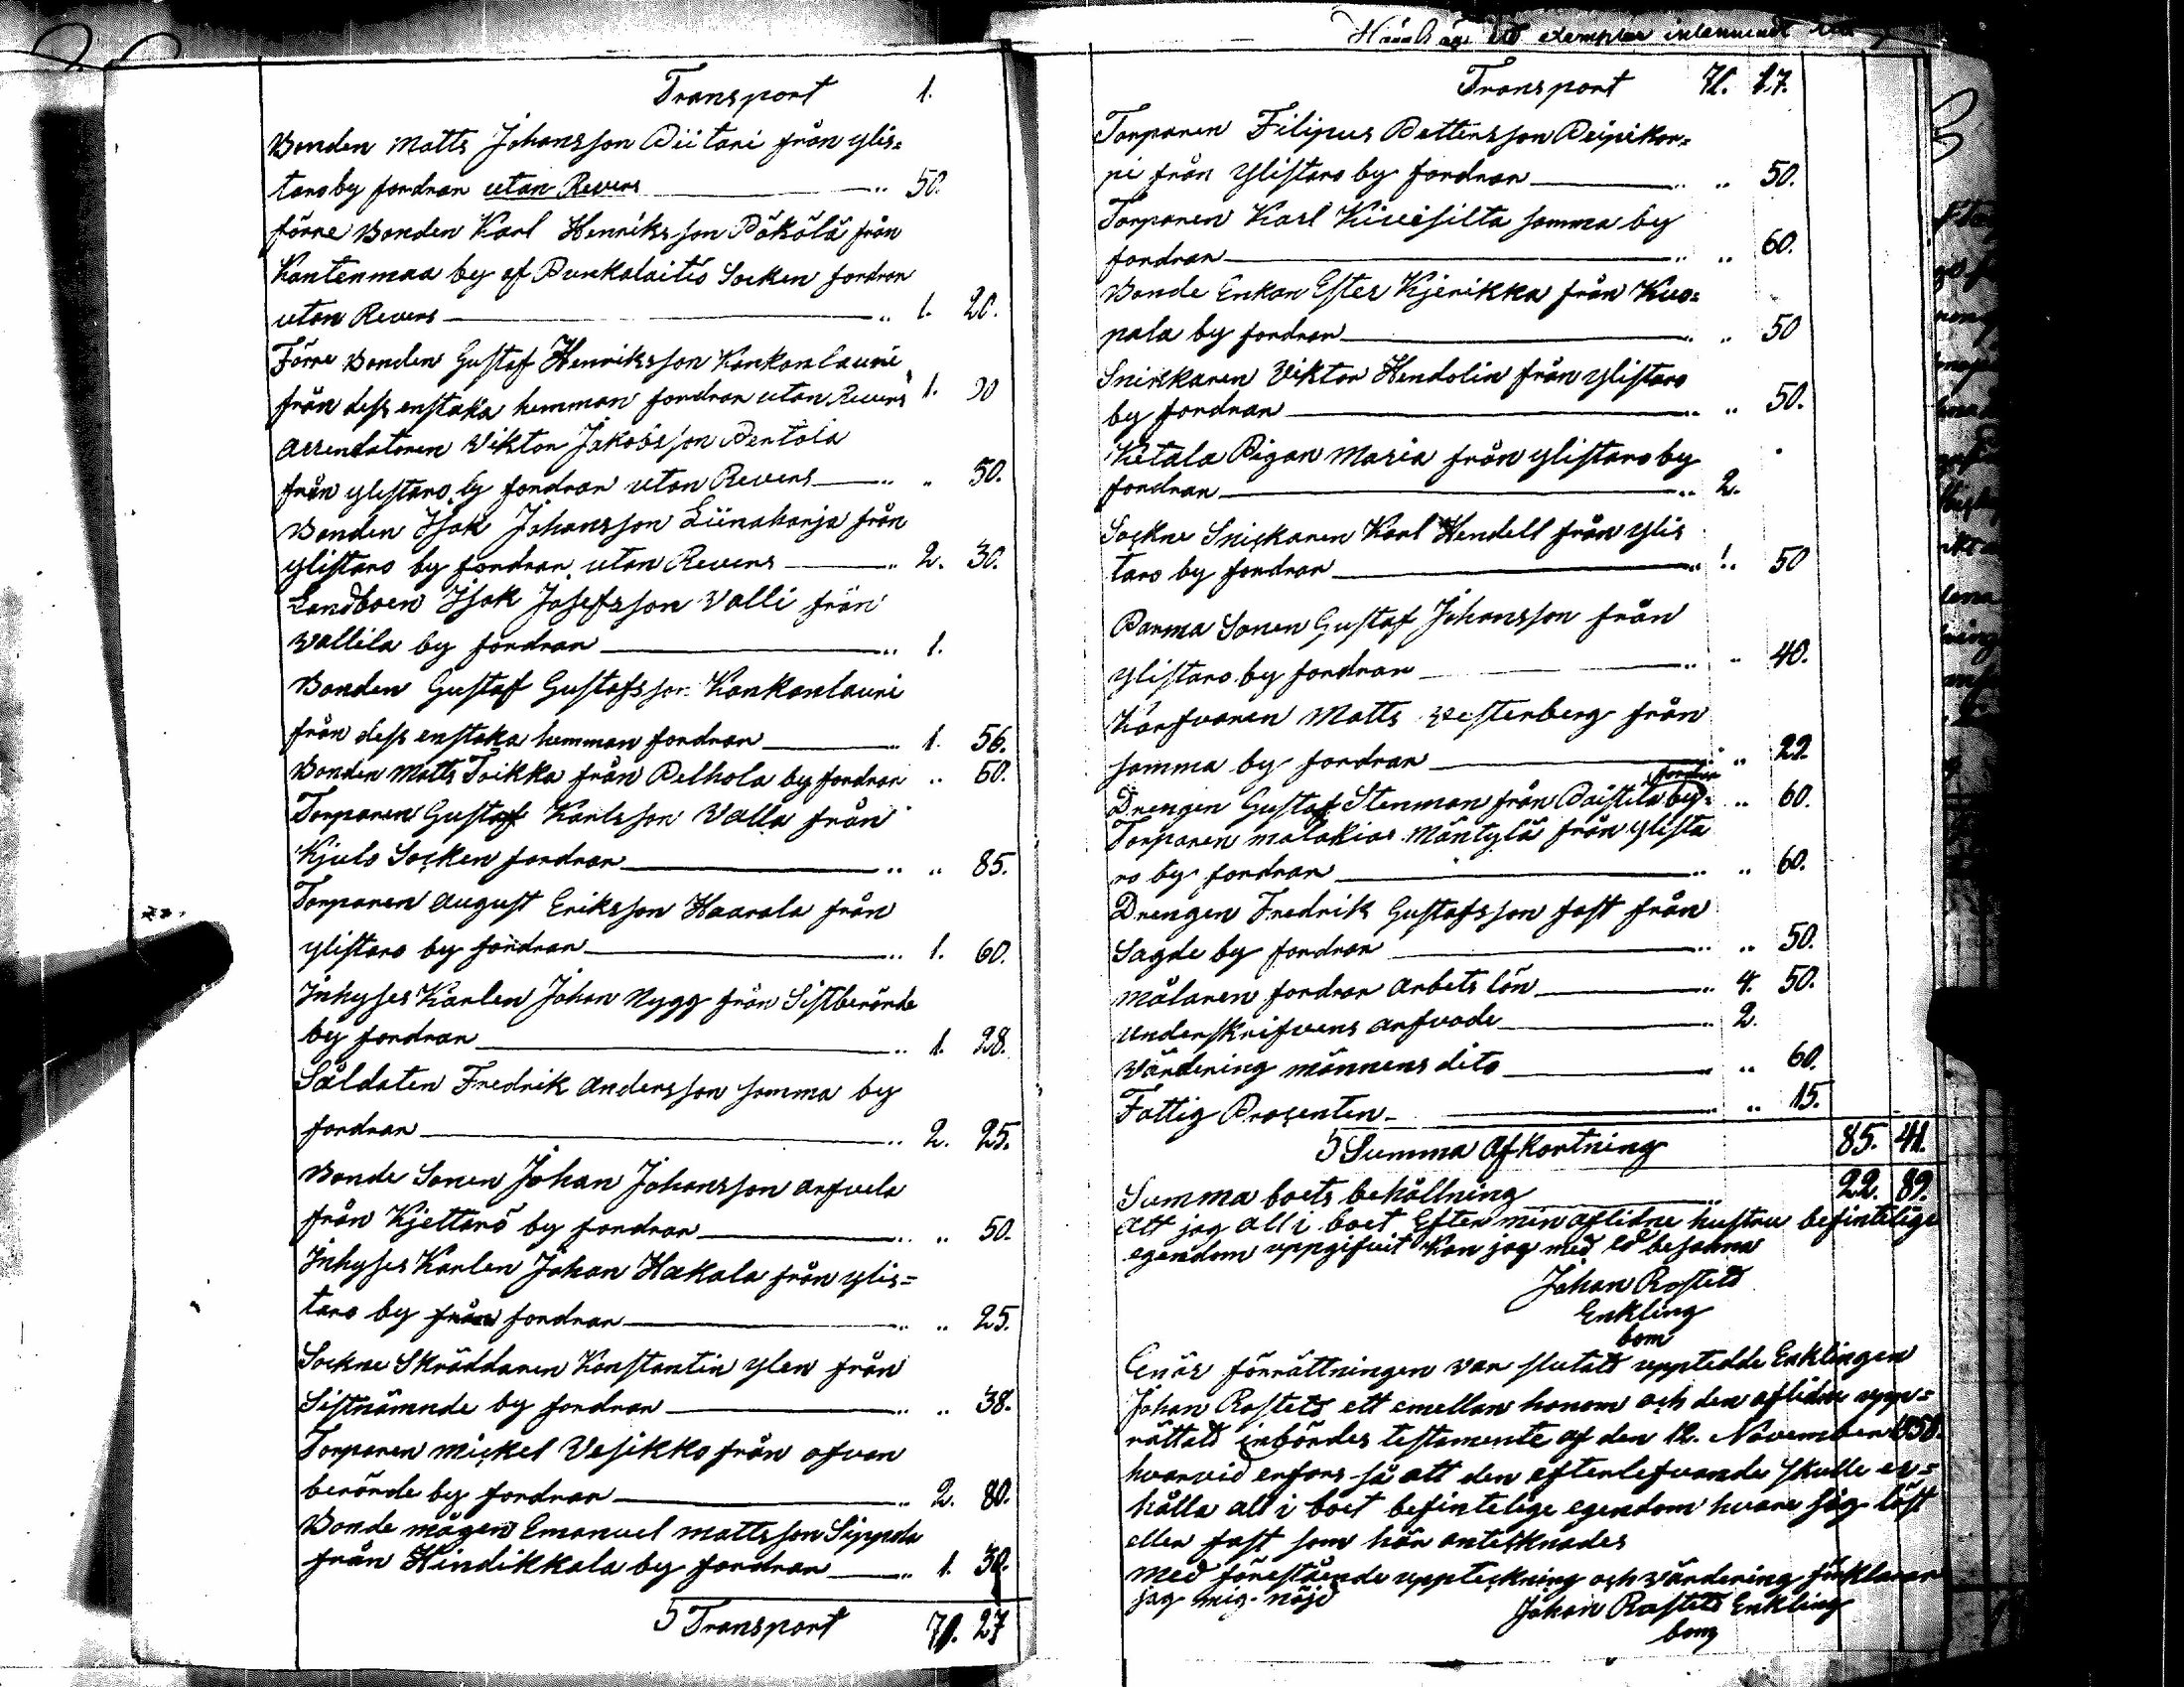 Transport 1.
Bonden Matts Johansson Piitari från ylis=
taroby fordran utan Revers " 50.
förre Bonden Karl Henriksson Pökölä från
Kantenmaa by af Punkalaitio Socken fordran
utan Revers " 1. 20.
Förre Bonden Gustaf Henriksson Kankanlauri
från dess enstaka hemman fordran utan Revers 1. 90
Arrendatoren Viktor Jakobsson Pentola
från ylistaro by fordran utan Revers " " 50.
Bonden Isak Johansson Liinaharja från
ylistaro by fordran utan Revers " 2. 30.
Landboen Isak Josefsson Valli från
Vallila by fordran " 1.
Bonden Gustaf Gustafsson Kankanlauri
från dess enstaka hemman fordran " 1. 56.
Bonden Matts Toikka från Pelhola by fordran " 60.
Torparen Gustaf Karlsson Valla från
Kjulo Socken fordran " " 85.
Torparen August Eriksson Haarala från
ylistaro by fordran " 1. 60.
Inhyses Karlen Johan Nygg från Sistberörde
by fordran " 1. 28.
Såldaten Fredrik Andersson samma by
fordran " 2. 25.
Bonde Sonen Johan Johansson Arfvela
från Kjettarö by fordran " " 50.
Inhyses Karlen Johan Hakala från ylis=
taro by från fordran " " 25.
Sockne Skräddaren Konstantin ylen från
Sistnämnde by fordran " " 38.
Torparen Mickel Vesikko från ofvan
berörde by fordran " 2. 80.
Bonde mågen Emanuel Mattsson Sippola
från Hindikkala by fordran " 1. 30.
Transport 71. 27
exemplar
Transport 71. 27.
Torparen Filipus Pettersson Peipikor=
pi från ylistaro by fordran " " 50.
Torparen Karl Kivisilta samma by
fordran " " 60.
Bonde Enkan Ester Kjerikka från Kuo=
pala by fordran " " 50
Snikkaren Viktor Hendolin från ylistaro
by fordran " " 50.
Ketala Pigan Maria från ylistaro by
fordran " 2.
Sockne Snickaren Karl Hendell från ylis
taro by fordran " 1. 50
Parma Sonen Gustaf Johansson från
ylistaro by fordran " " 40.
Karfvaren Matts Vesterberg från
samma by fordran " " 22.
fordran
Drengen Gustaf Stenman från Paistila by " 60.
Torparen Malakias Mäntylä från ylista
ro by fordran " " 60.
Drengen Fredrik Gustafsson fast från
Sagde by fordran " " 50.
Målaren fordrar arbets lön " 4. 50.
Underskrifvens arfvode " 2.
Värdering männens dito " " 60.
Fattig Procenten " " 15.
Summa Afkortning 85. 41.
Summa boets behållning " 22. 89.
Att jag all i boet Efter min aflidne hustru befintelige
egendom uppgifvit kan jag med ed besanna
Johan Rostedt
Enkling
bom
Enär förrättningen var slutad uppteddde Enklingen
Johan Rostedt ett emellan honom och den aflidne upp=
rättadt inbördes testamente af den 12. November 1858.
hvarvid erfors så att den efterlefvande skulle er=
hålla all i boet befintelige egendom hvare sig löst
eller fast som här antecknades
Med förestående uppteckning och värdering förklarar
jag mig nöjd
Johan Rostedt Enkling
bom